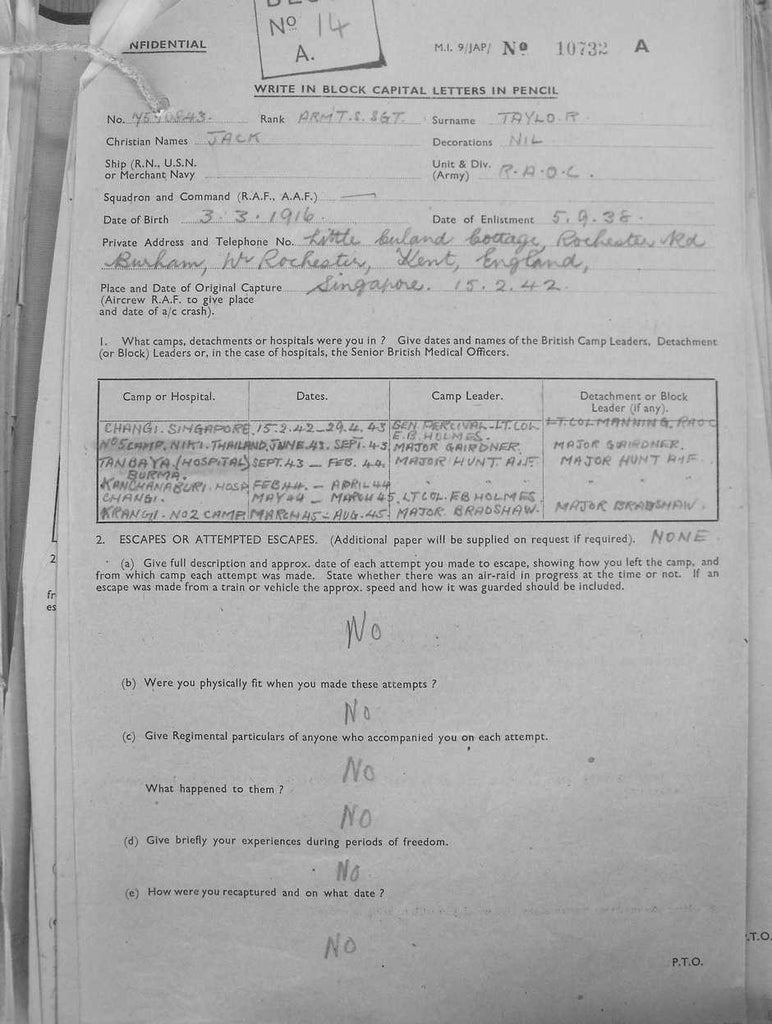 No 14
A.
NFIDENTIAL
M.I. 9/JAP/ No 10732 A
WRITE IN BLOCK CAPITAL LETTERS IN PENCIL
No. Rank ARMT. S. SGT. Surname TAYLOR
Christian Names JACK Decorations NIL
Ship (R.N., U.S.N. or Merchant Navy
Unit & Div. (Army) R.A.O.C.
Squadron and Command (R.A.F., A.A.F.) —
Date of Birth 3.3.1916 Date of Enlistment 5.9.38.
Private Address and Telephone No. Little Culand Cottage, Rochester Rd
Burham, Nr Rochester, Kent, England,
Place and Date of Original Capture Singapore. 15.2.42.
(Aircrew R.A.F. to give place
and date of a/c crash).
1. What camps, detachments or hospitals were you in ? Give dates and names of the British Camp Leaders, Detachment
(or Block) Leaders or, in the case of hospitals, the Senior British Medical Officers.
Camp or Hospital. Dates. Camp Leader. Detachment or Block Leader (if any).
CHANGI. SINGAPORE. 15.2.42–29.4.43 GEN PERCIVAL–LT.COL E.B. HOLMES. LT.COL MANNING, RAOC
No 5 CAMP. NIKI. THAILAND. JUNE.43. SEPT.43 MAJOR GAIRDNER. MAJOR GAIRDNER.
TANBAYA (HOSPITAL) BURMA. SEPT.43 – FEB. 44. MAJOR HUNT AIF MAJOR HUNT AIF
KANCHANABURI. HOSP FEB 44 – APRIL 44 " " " "
CHANGI. MAY 44 – MARCH 45. LT COL. EB HOLMES.
KRANGI. NO2 CAMP MARCH 45 – AUG. 45. MAJOR BRADSHAW. MAJOR BRADSHAW.
2. ESCAPES OR ATTEMPTED ESCAPES. (Additional paper will be supplied on request if required). NONE.
(a) Give full description and approx. date of each attempt you made to escape, showing how you left the camp, and
from which camp each attempt was made. State whether there was an air-raid in progress at the time or not. If an
escape was made from a train or vehicle the approx. speed and how it was guarded should be included.
No
(b) Were you physically fit when you made these attempts ?
No
(c) Give Regimental particulars of anyone who accompanied you on each attempt.
No
What happened to them ?
No
(d) Give briefly your experiences during periods of freedom.
No
(e) How were you recaptured and on what date ?
No
P.T.O.
.T.O.
2
fr
es